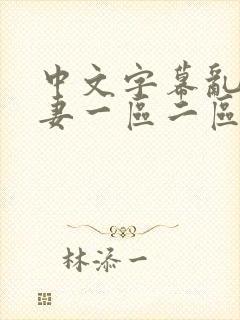 中文字幕亂
妻一區二區
林添一